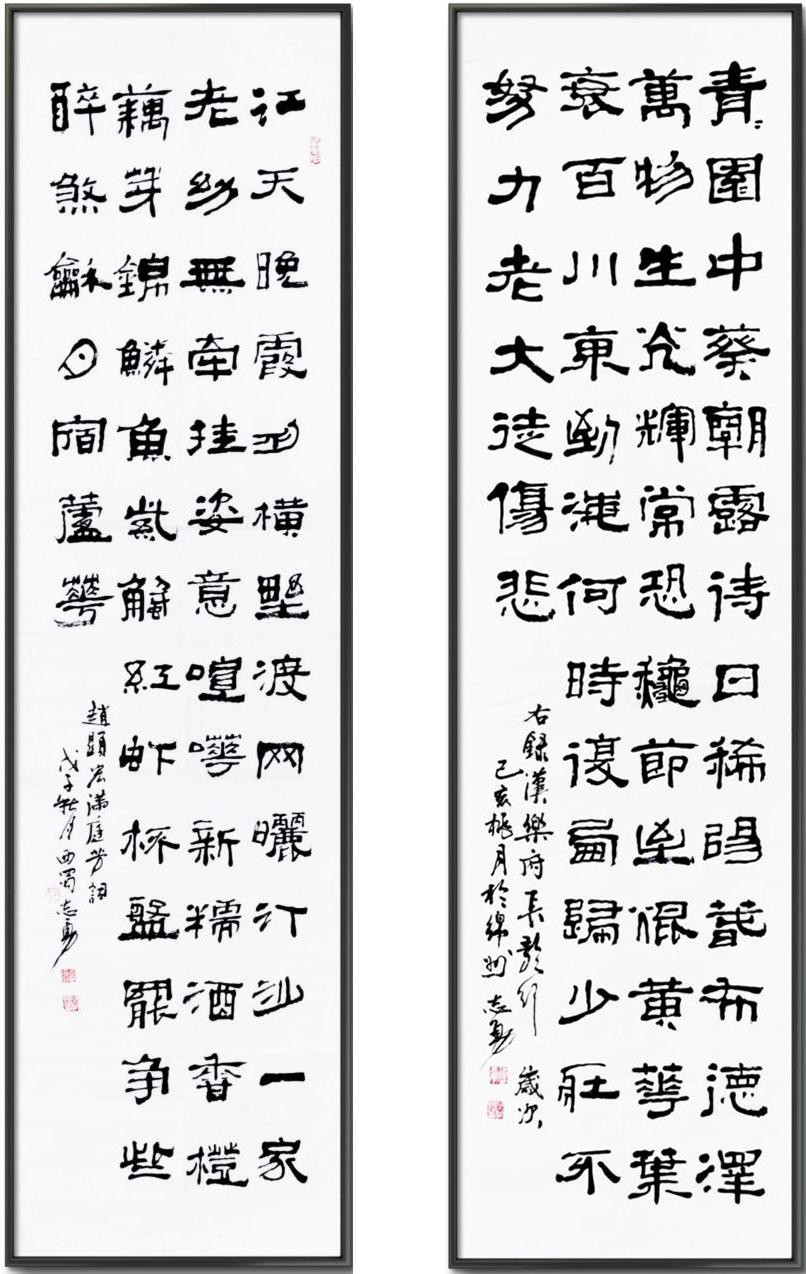 青園中葵朝露待日稀陽春布德澤
萬物生光輝常恐龝節至焜黃華葉
衰百川東到海何時復西歸少壯不
努力老大徒傷悲
右錄漢樂府長歌行 歲次
己亥桃月於綿州 志勇
江天晚霞舟橫野渡网曬汀沙一家
老幼無牽挂姿意喧嘩新糯酒香橙
藕芽錦鱗魚紫蟹紅虾杯盤罷爭些
醉煞龢月宿蘆華
趙顯宏滿庭芳詞
戊子秋月西蜀志勇